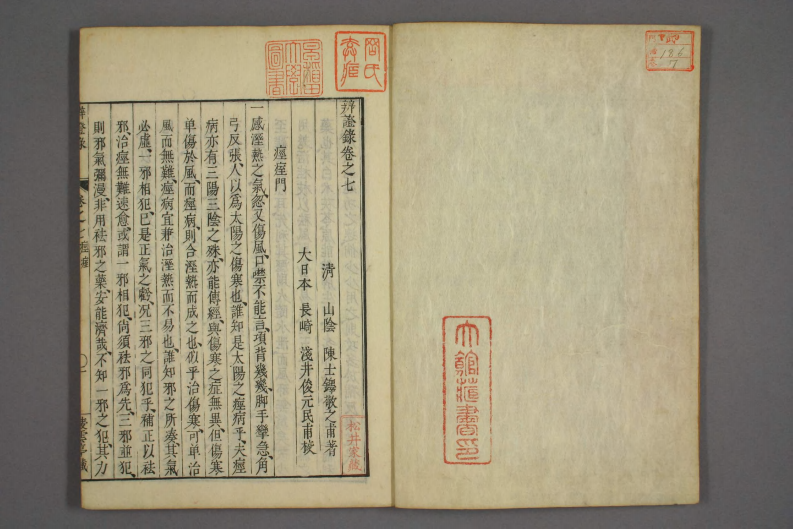 辨證錄卷之七
清　山陰　陳士鐸敬之甫著
大日本　長崎　淺井俊元民甫校
痙㾏門
一感溼熱之氣、忽又傷風、口噤不能言、項背幾幾、脚手攣急、角
弓反張、人以爲太陽之傷寒也、誰知是太陽之痙病乎、夫痙
病亦有三陽三陰之殊、亦能傳經、與傷寒之症無異、但傷寒
單傷於風、而痙病則合溼熱而成之也、似乎治傷寒、可單治
風而無難、痙病宜兼治溼熱而不易也、誰知邪之所湊、其氣
必虛、一邪相犯、已是正氣之虧、況三邪之同犯乎、補正以祛
邪、治痙無難速愈、或謂一邪相犯、尚須祛邪爲先、三邪並犯、
則邪氣彌漫、非用祛邪之藥、安能濟哉、不知一邪之犯、其力
辨證錄
卷之七
松井家藏
大館藏書印
186
7